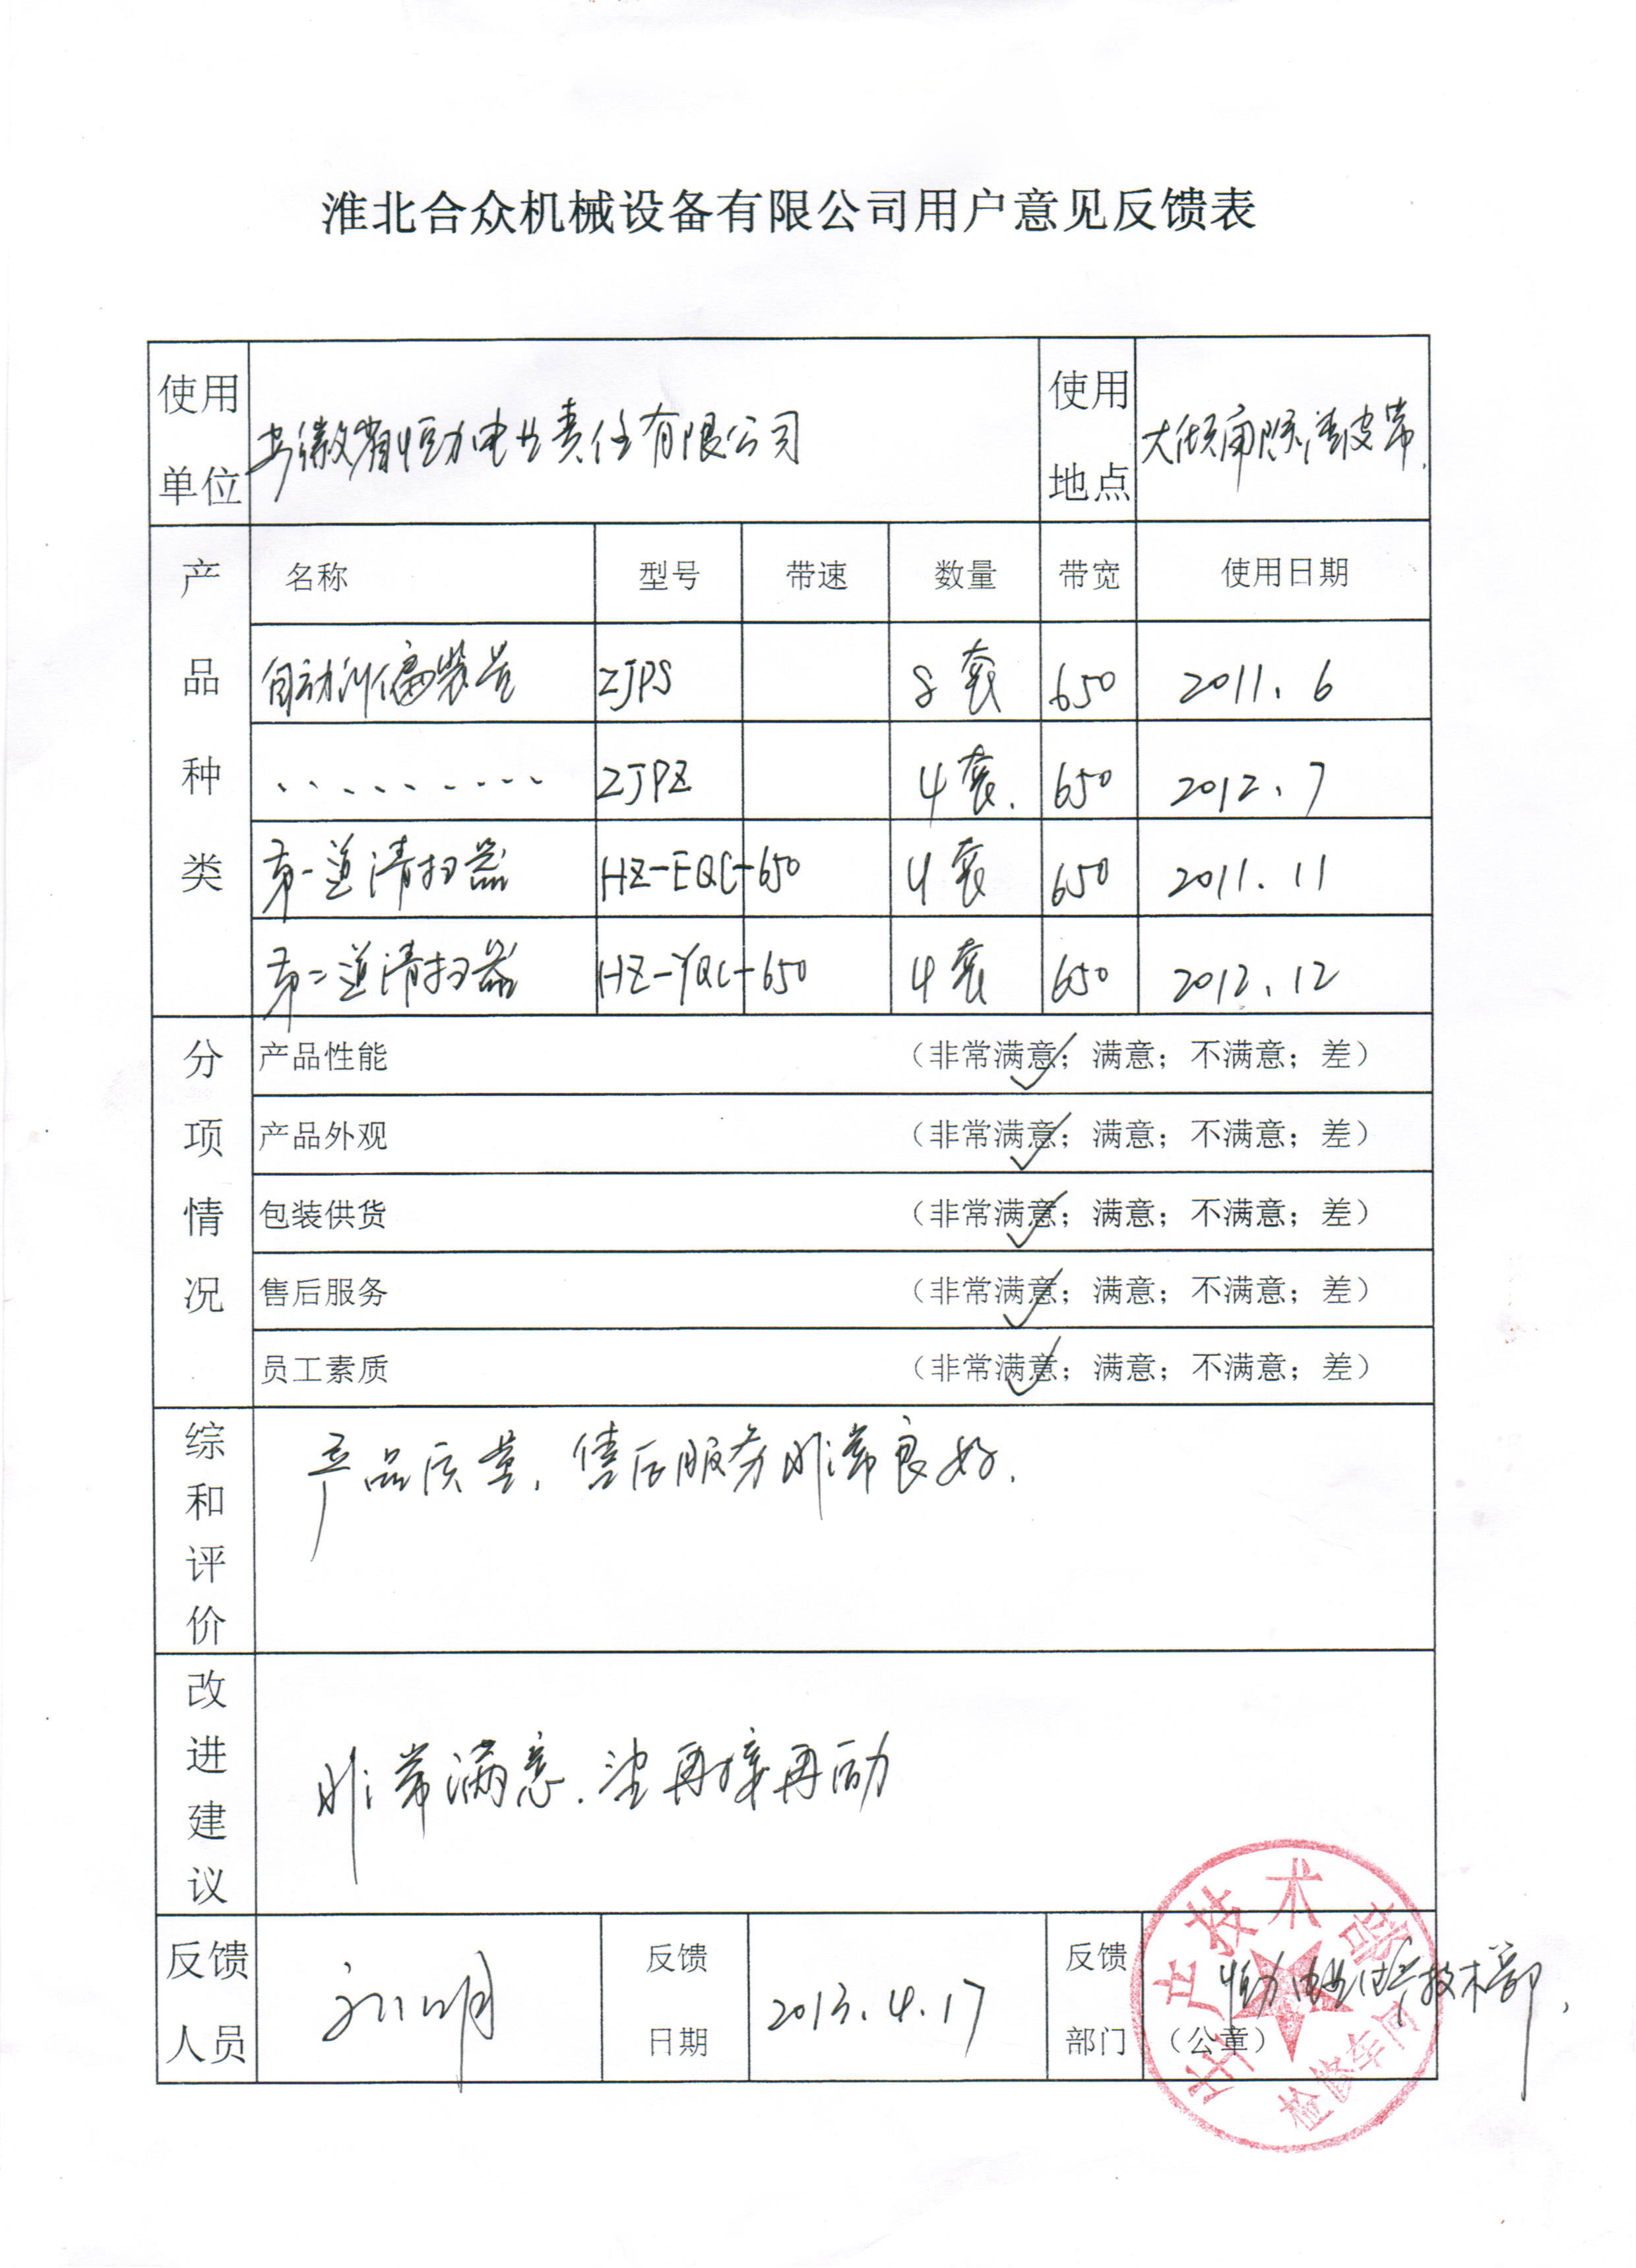 淮北合众机械设备有限公司用户意见反馈表
使用单位 安徽省恒力电业责任有限公司 使用地点 大倾角 皮带.
产品种类 名称 型号 带速 数量 带宽 使用日期
自动纠偏装置 ZJPS 8套 650 2011.6
、、、、、、、、、 ZJPZ 4套. 650 2012.7
第一道清扫器 HZ-EQC-650 4套 650 2011.11
第二道清扫器 HZ-YQC-650 4套 650 2012.12
分项情况 产品性能 （非常满意；满意；不满意；差）
产品外观 （非常满意；满意；不满意；差）
包装供货 （非常满意；满意；不满意；差）
售后服务 （非常满意；满意；不满意；差）
员工素质 （非常满意；满意；不满意；差）
综和评价 产品质量、售后服务非常良好.
改进建议 非常满意.望再接再励
反馈人员 反馈日期 2013.4.17 反馈部门 （公章） 恒力电业生产技术部,
生产技术部
检修车间